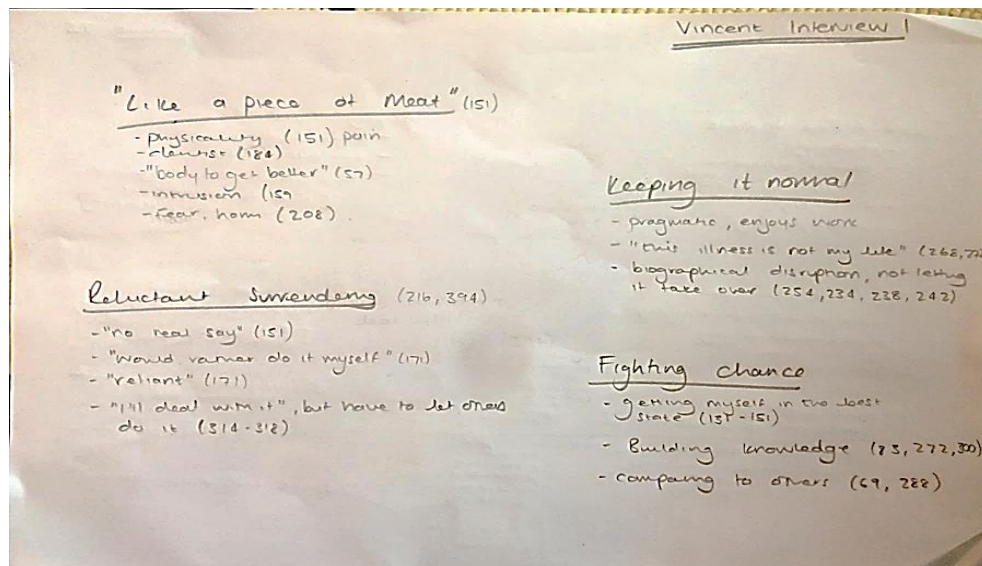 Vincent Interview 1
"Like a piece of meat" (151)
- physicality (151) pain
- dentist (184)
- "body to get better" (57)
- intrusion (159
- fear, harm (208)
Reluctant Surrendering (216, 394)
- "no real say" (151)
- "would rather do it myself" (171)
- "reliant" (171)
- "I'll deal with it", but have to let others
do it (314-318)
Keeping it normal
- pragmatic, enjoys work
- "this illness is not my life" (268,
- biographical disruption, not letting
it take over (254, 234, 238, 242)
Fighting chance
- getting myself in the best
state
- Building knowledge (83, 272, 300)
- comparing to others (69, 288)